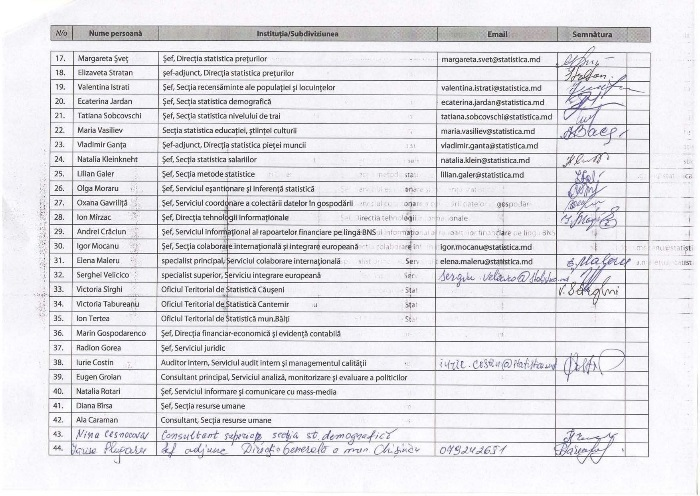 N/o Nume persoană Instituția/Subdiviziunea Email Semnătura
17. Margareta Șveț Șef, Direcția statistica prețurilor margareta.svet@statistica.md
18. Elizaveta Stratan șef-adjunct, Direcția statistica prețurilor
19. Valentina Istrati Șef, Secția recensăminte ale populației și locuințelor valentina.istrati@statistica.md
20. Ecaterina Jardan Șef, Secția statistica demografică ecaterina.jardan@statistica.md
21. Tatiana Sobcovschi Șef, Secția statistica nivelului de trai tatiana.sobcovschi@statistica.md
22. Maria Vasiliev Secția statistica educației, științei culturii maria.vasiliev@statistica.md
23. Vladimir Ganța Șef-adjunct, Direcția pieței muncii vladimir.ganta@statistica.md
24. Natalia Kleinkneht Șef, Secția statistica salariilor natalia.klein@statistica.md
25. Lilian Galer Șef, Secția metode statistice lilian.galer@statistica.md
26. Olga Moraru Șef, Serviciul eșantionare și inferență statistică
27. Oxana Gavriliță Șef, Serviciul coordonare a colectării datelor în gospodării
28. Ion Mîrzac Șef, Direcția tehnologii informaționale
29. Andrei Crăciun Șef, Serviciul informațional al rapoartelor financiare pe lîngă BNS
30. Igor Mocanu Șef, Secția colaborare internațională și integrare europeană igor.mocanu@statistica.md
31. Elena Maleru specialist principal, Serviciul colaborare internațională elena.maleru@statistica.md
32. Serghei Velicico specialist superior, Serviciu integrare europeană
33. Victoria Sîrghi Oficiul Teritorial de Statistică Căușeni
34. Victoria Tabureanu Oficiul Teritorial de Statistică Cantemir
35. Ion Tertea Oficiul Teritorial de Statistică mun.Bălți
36. Marin Gospodarenco Șef, Direcția financiar-economică și evidență contabilă
37. Radion Gorea Șef, Serviciul juridic
38. Iurie Costin Auditor intern, Serviciul audit intern și managementul calității
39. Eugen Grolan Consultant principal, Serviciul analiză, monitorizare și evaluare a politicilor
40. Natalia Rotari Șef, Serviciul informare și comunicare cu mass-media
41. Diana Bîrsa Șef, Secția resurse umane
42. Ala Caraman Consultant, Secția resurse umane
43. Nina Cesnocova Consultant superior secția st. demografică
44. șef adjunct Direcția Generală a mun Chișinău 079242651